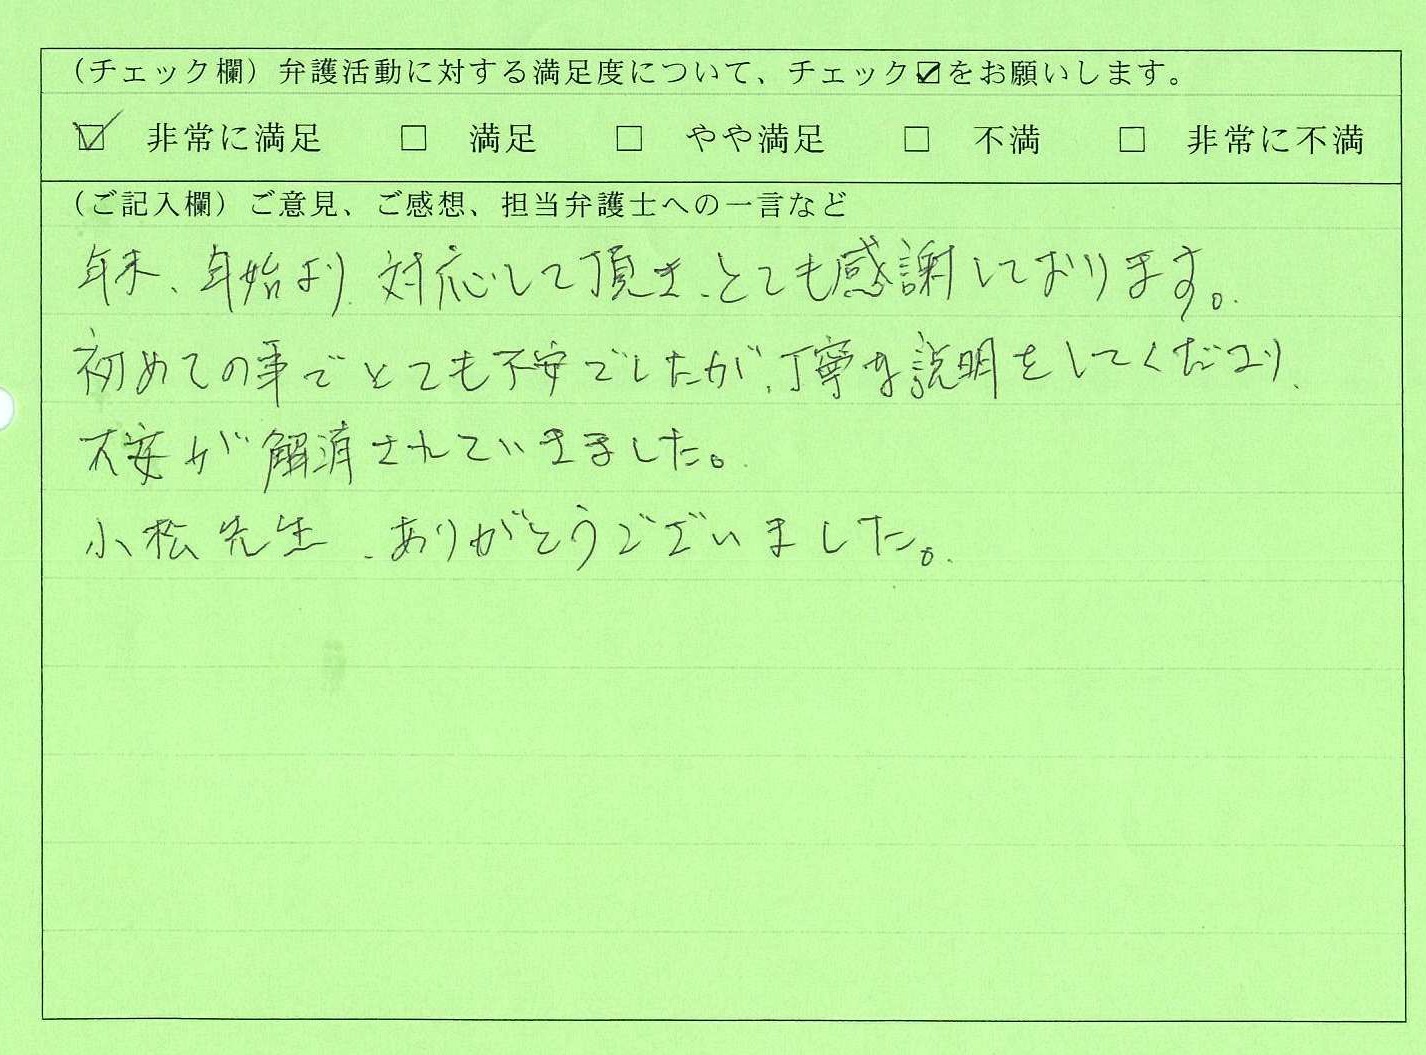 （チェック欄）弁護活動に対する満足度について、チェック☑をお願いします。
☑ 非常に満足 □ 満足 □ やや満足 □ 不満 □ 非常に不満
（ご記入欄）ご意見、ご感想、担当弁護士への一言など
年末、年始より対応して頂き、とても感謝しております。
初めての事でとても不安でしたが、丁寧な説明をしてくださり、
不安が解消されていきました。
小松先生、ありがとうございました。